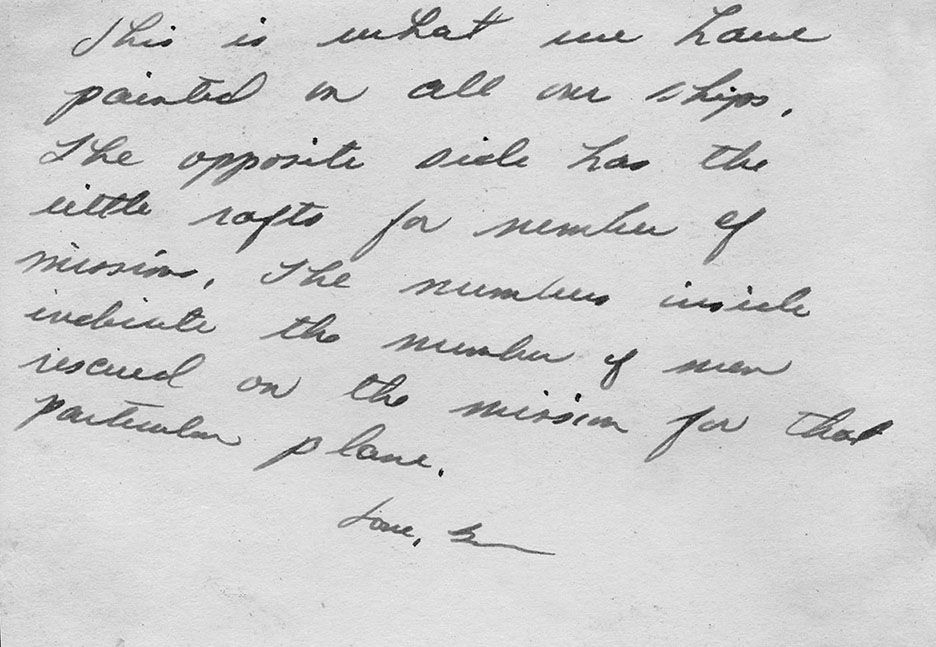 This is what we have
painted on all our ships.
The opposite side has the
little rafts for number of
missions. The numbers inside
indicate the number of men
rescued on the mission for that
particular plane.
Love,